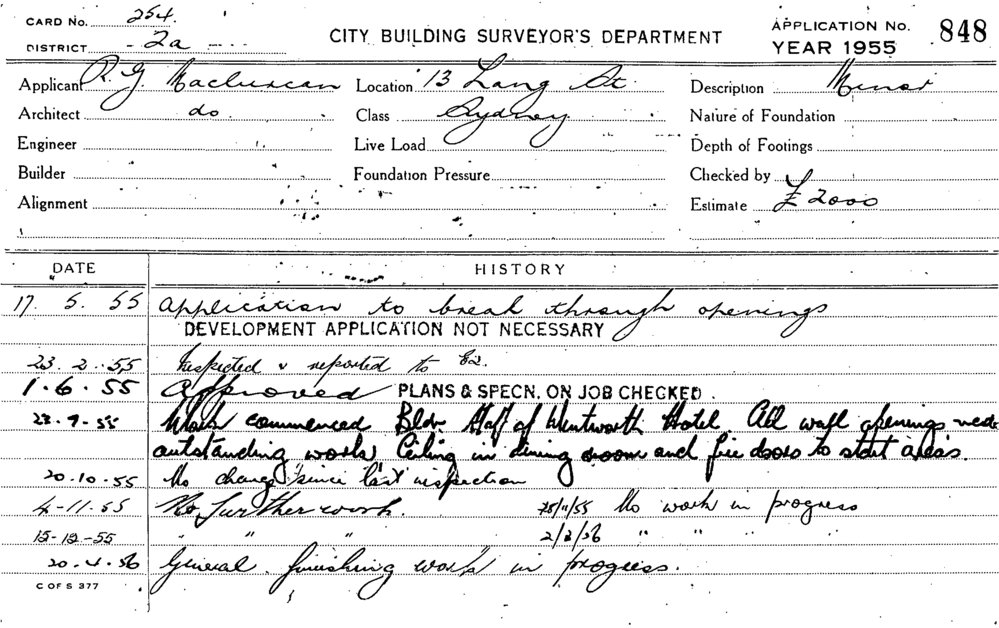 CARD No. 254.
DISTRICT 2a
CITY BUILDING SURVEYOR'S DEPARTMENT
APPLICATION No. 848
YEAR 1955
Applicant R. G. Location 13 Lang St Description Minor
Architect do Class Sydney Nature of Foundation
Engineer Live Load Depth of Footings
Builder Foundation Pressure Checked by
Alignment Estimate £2000
DATE HISTORY
17. 5. 55 Application to break through openings
DEVELOPMENT APPLICATION NOT NECESSARY
23. 2. 55 Inspected & reported to
1. 6. 55 Approved PLANS & SPECN. ON JOB CHECKED.
23-9-55 Work commenced Bldr. Staff of Wentworth Hotel. All wall openings made
outstanding work Ceiling in dining room and fire doors to stair areas.
20-10-55 No change since last inspection
4-11-55 No further work. 25/11/55 No work in progress
15-12-55 " " " 2/3/56 " " "
20.4.56 General finishing work in progress.
C OF S 377